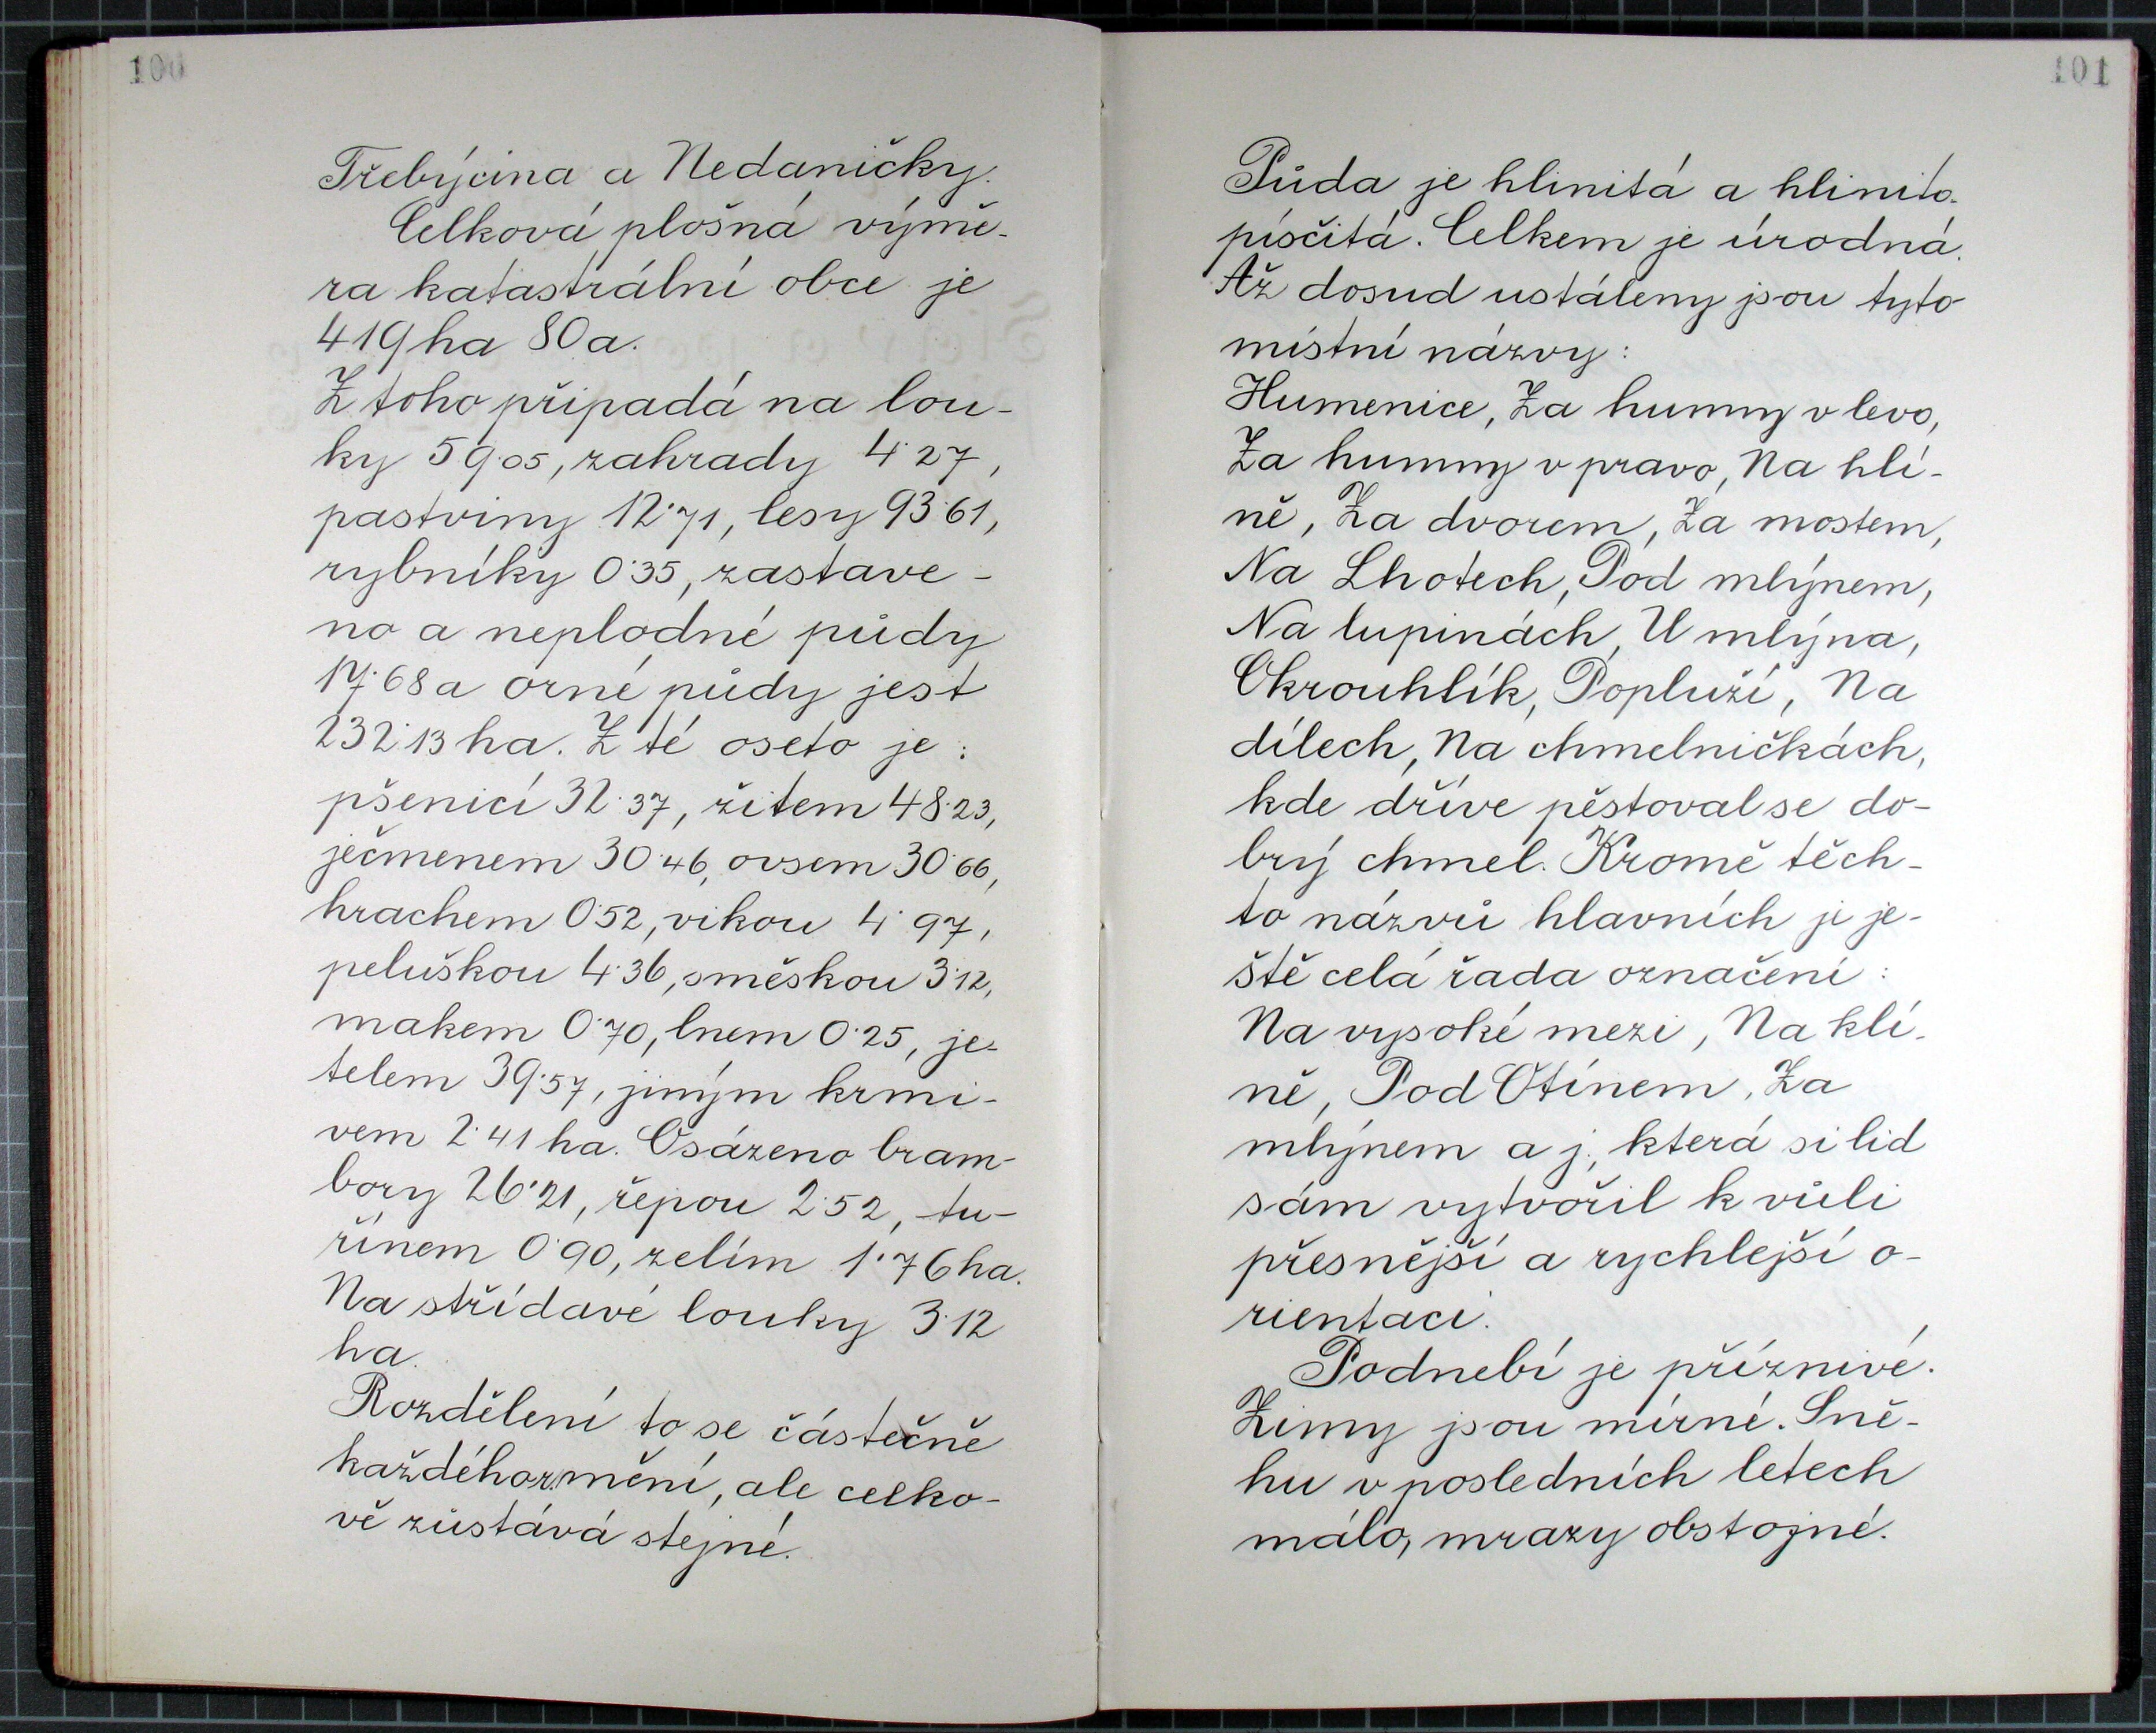 100
Třebýcina a Nedaničky.
Celková plošná výmě-
ra katastrální obce je
419 ha 80 a.
Z toho připadá na lou-
ky 59·05, zahrady 4·27,
pastviny 12·71, lesy 93·61,
rybníky 0·35, zastave-
no a neplodné půdy
17·68 a orné půdy jest
232·13 ha. Z té oseto je:
pšenicí 32·37, žitem 48·23,
ječmenem 30·46, ovsem 30·66,
hrachem 0·52, vikou 4·97,
peluškou 4·36, směskou 3·12,
makem 0·70, lnem 0·25, je-
telem 39·57, jiným krmi-
vem 2·41 ha. Osázeno bram-
bory 26·21, řepou 2·52, tu-
řínem 0·90, zelím 1·76 ha.
Na střídavé louky 3·12
ha.
Rozdělení to se částečně
každého r. mění, ale celko-
vě zůstává stejné.
101
Půda je hlinitá a hlinito-
písčitá. Celkem je úrodná.
Až dosud ustáleny jsou tyto
místní názvy:
Humenice, Za humny v levo,
Za humny v pravo, Na hlí-
ně, Za dvorem, Za mostem,
Na Lhotech, Pod mlýnem,
Na lupinách, U mlýna,
Okrouhlík, Popluží, Na
dílech, Na chmelničkách,
kde dříve pěstoval se do-
brý chmel. Kromě těch-
to názvů hlavních je je-
ště celá řada označení:
Na vysoké mezi, Na klí-
ně, Pod Otínem, Za
mlýnem a j., která si lid
sám vytvořil k vůli
přesnější a rychlejší o-
rientaci.
Podnebí je příznivé.
Zimy jsou mírné. Sně-
hu v posledních letech
málo, mrazy obstojné.